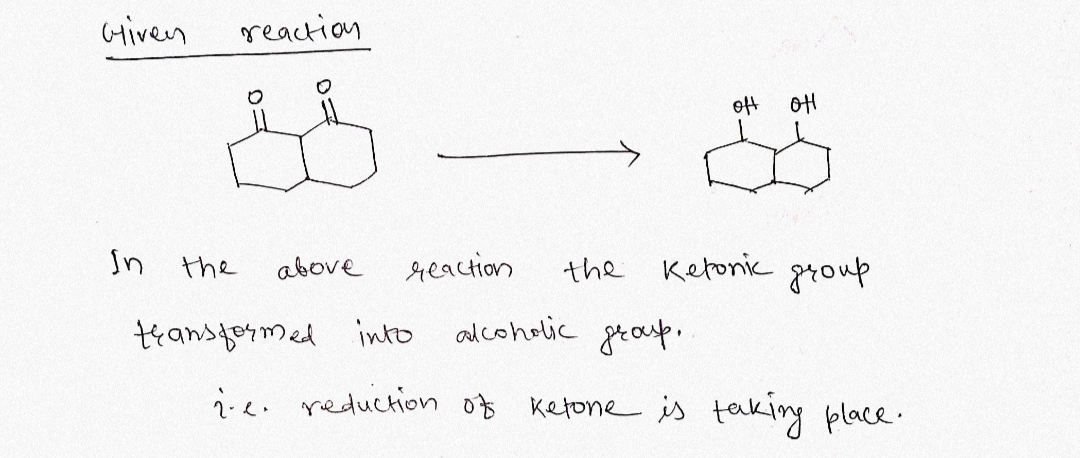 Given reaction
O O
OH OH
In the above reaction the Ketonic group
transformed into alcoholic group.
i.e. reduction of Ketone is taking place.